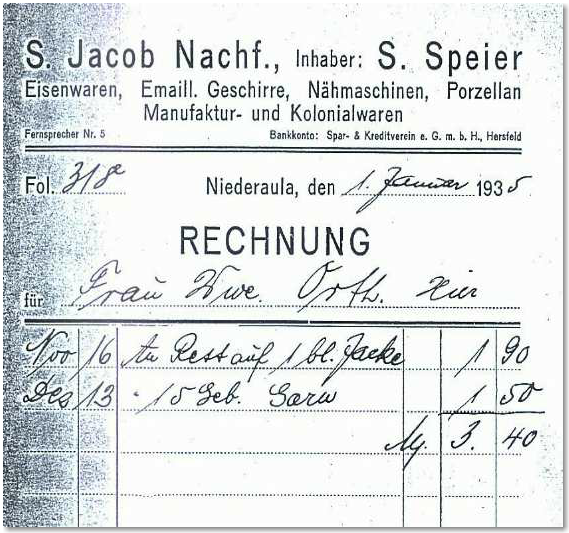 S. Jacob Nachf., Inhaber: S. Speier
Eisenwaren, Emaill. Geschirre, Nähmaschinen, Porzellan
Manufaktur- und Kolonialwaren
Fernsprecher Nr. 5 Bankkonto: Spar- & Kreditverein e. G. m. b. H., Hersfeld
Fol. 318 Niederaula, den 1. Januar 1935
RECHNUNG
für Frau Wwe. Orth. Hier
Nov 16 An Rest auf 1 bl. Jacke 1 90
Des 13 15 Geb. Garn 1 50
M. 3. 40